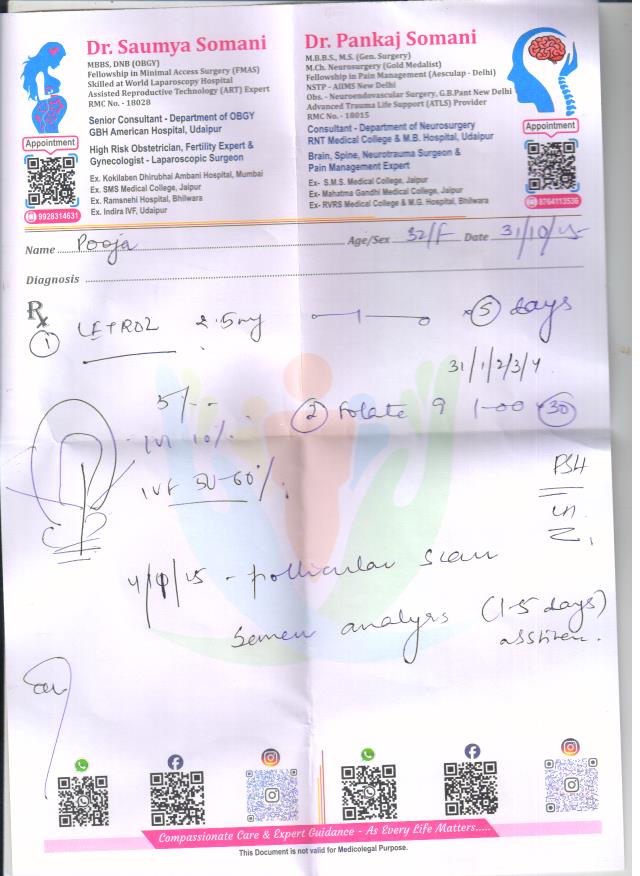 Dr. Saumya Somani
MBBS, DNB (OBGY)
Fellowship in Minimal Access Surgery (FMAS)
Skilled at World Laparoscopy Hospital
Assisted Reproductive Technology (ART) Expert
RMC No. - 18028
Senior Consultant - Department of OBGY
GBH American Hospital, Udaipur
High Risk Obstetrician, Fertility Expert &
Gynecologist - Laparoscopic Surgeon
Ex. Kokilaben Dhirubhai Ambani Hospital, Mumbai
Ex. SMS Medical College, Jaipur
Ex. Ramsnehi Hospital, Bhilwara
Ex. Indira IVF, Udaipur
Appointment
9928314631
Dr. Pankaj Somani
M.B.B.S., M.S. (Gen. Surgery)
M.Ch. Neurosurgery (Gold Medalist)
Fellowship in Pain Management (Aesculap - Delhi)
NSTP - AIIMS New Delhi
Obs. - Neuroendovascular Surgery, G.B.Pant New Delhi
Advanced Trauma Life Support (ATLS) Provider
RMC No. - 18015
Consultant - Department of Neurosurgery
RNT Medical College & M.B. Hospital, Udaipur
Brain, Spine, Neurotrauma Surgeon &
Pain Management Expert
Ex- S.M.S. Medical College, Jaipur
Ex- Mahatma Gandhi Medical College, Jaipur
Ex- RVRS Medical College & M.G. Hospital, Bhilwara
Appointment
8764113536
Name Pooja Age/Sex 32/F Date 31/10/25
Diagnosis
Rx
1 LETROZ 2.5mg x 5 days
31/1/2/3/4
2 Folate 9 1-00 x 30
IUI 10%
IVF 50-60%
FSH
LH
- follicular scan
Semen analysis (1-5 days)
Compassionate Care & Expert Guidance - As Every Life Matters.....
This Document is not valid for Medicolegal Purpose.